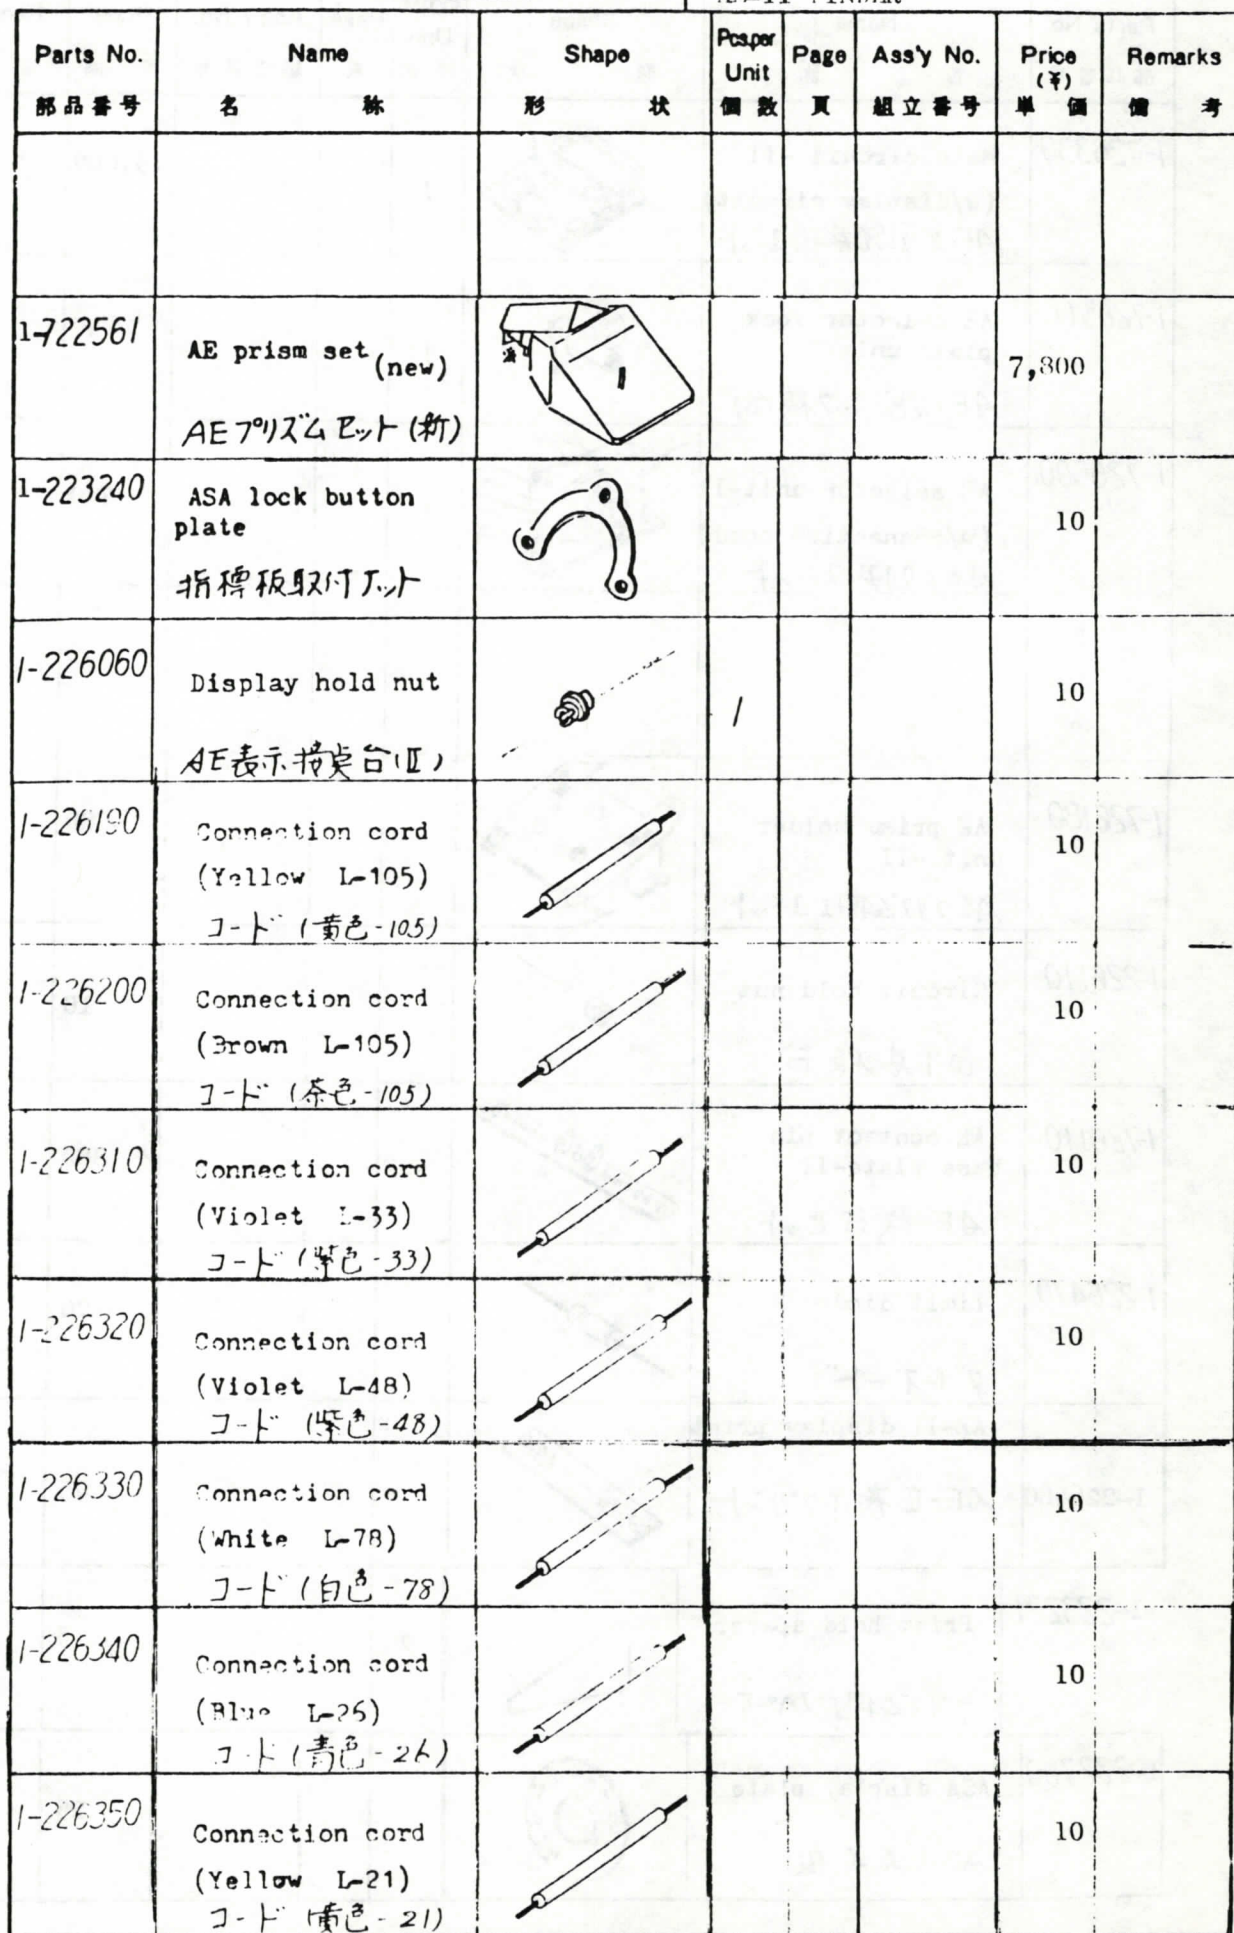 Parts No.
Name
Shape
Pcs.per
Unit
Page
Ass'y No.
Price
(¥)
Remarks
部品番号
名 称
形 状
個数
頁
組立番号
単 価
備 考
1-722561
AE prism set (new)
7,800
AEプリズムセット(新)
1-223240
ASA lock button
plate
10
指標板取付ナット
1-226060
Display hold nut
1
10
AE表示接点台(II)
1-226190
Connection cord
10
(Yellow L-105)
コード (黄色-105)
1-226200
Connection cord
10
(Brown L-105)
コード (茶色-105)
1-226310
Connection cord
10
(Violet L-33)
コード (紫色-33)
1-226320
Connection cord
10
(Violet L-48)
コード (紫色-48)
1-226330
Connection cord
10
(White L-78)
コード (白色-78)
1-226340
Connection cord
10
(Blue L-26)
コード (青色-26)
1-226350
Connection cord
10
(Yellow L-21)
コード (黄色-21)